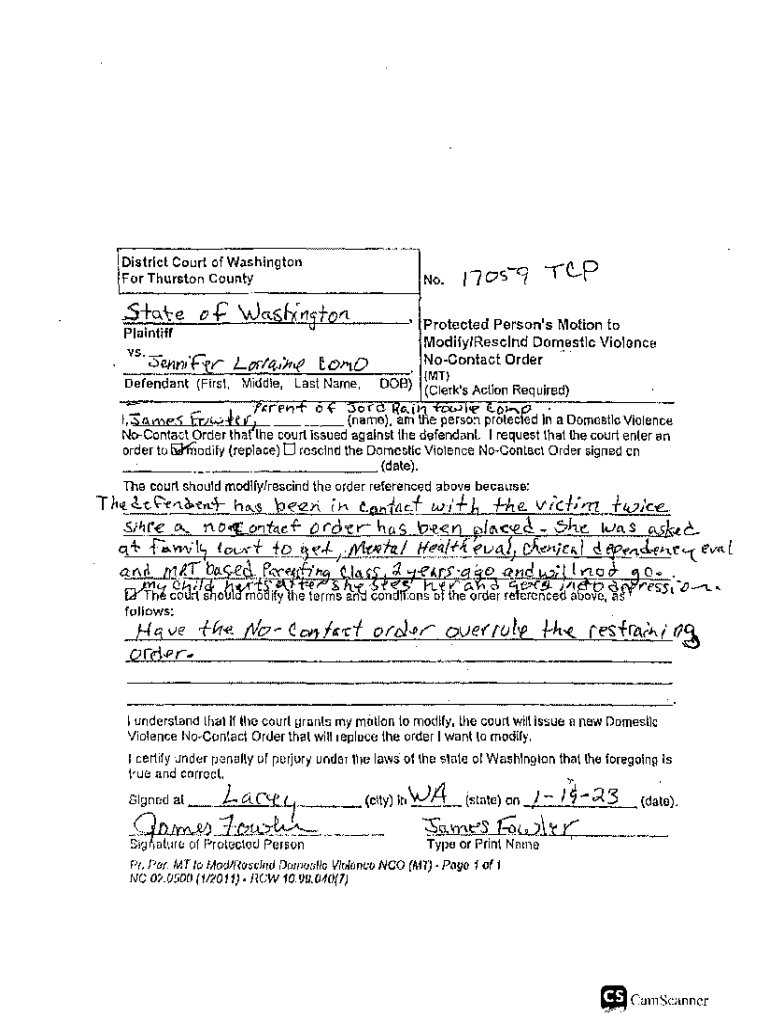 District Court of Washington
For Thurston County
No. 17059 TCP
State of Washington,
Plaintiff
vs. Jennifer Lorraine Como
Defendant (First, Middle, Last Name, DOB)
Protected Person's Motion to
Modify/Rescind Domestic Violence
No-Contact Order
(MT)
(Clerk's Action Required)
Parent of Rain Como
I, James Fowler, (name), am the person protected in a Domestic Violence
No-Contact Order that the court issued against the defendant. I request that the court enter an
order to ☑ modify (replace) ☐ rescind the Domestic Violence No-Contact Order signed on
(date).
The court should modify/rescind the order referenced above because:
The defendent has been in contact with the victim twice
sinre a no contact order has been placed - She was asked
at family court to get, Mental Health eval, Chemical dependency eval
and MRT based Parenting Class, 2 years ago and will not go.
my child herts after she sees her and goes into depression.
☑ The court should modify the terms and conditions of the order referenced above, as
follows:
Have the No-Contact order overrule the restraining
order.
I understand that if the court grants my motion to modify, the court will issue a new Domestic
Violence No-Contact Order that will replace the order I want to modify.
I certify under penalty of perjury under the laws of the state of Washington that the foregoing is
true and correct.
Signed at Lacey (city) in WA (state) on 1-19-23 (date).
James Fowler James Fowler
Signature of Protected Person Type or Print Name
Pr. Per. MT to Mod/Rescind Domestic Violence NCO (MT) - Page 1 of 1
NC 02.0500 (1/2011) - RCW 10.99.040(7)
CS CamScanner